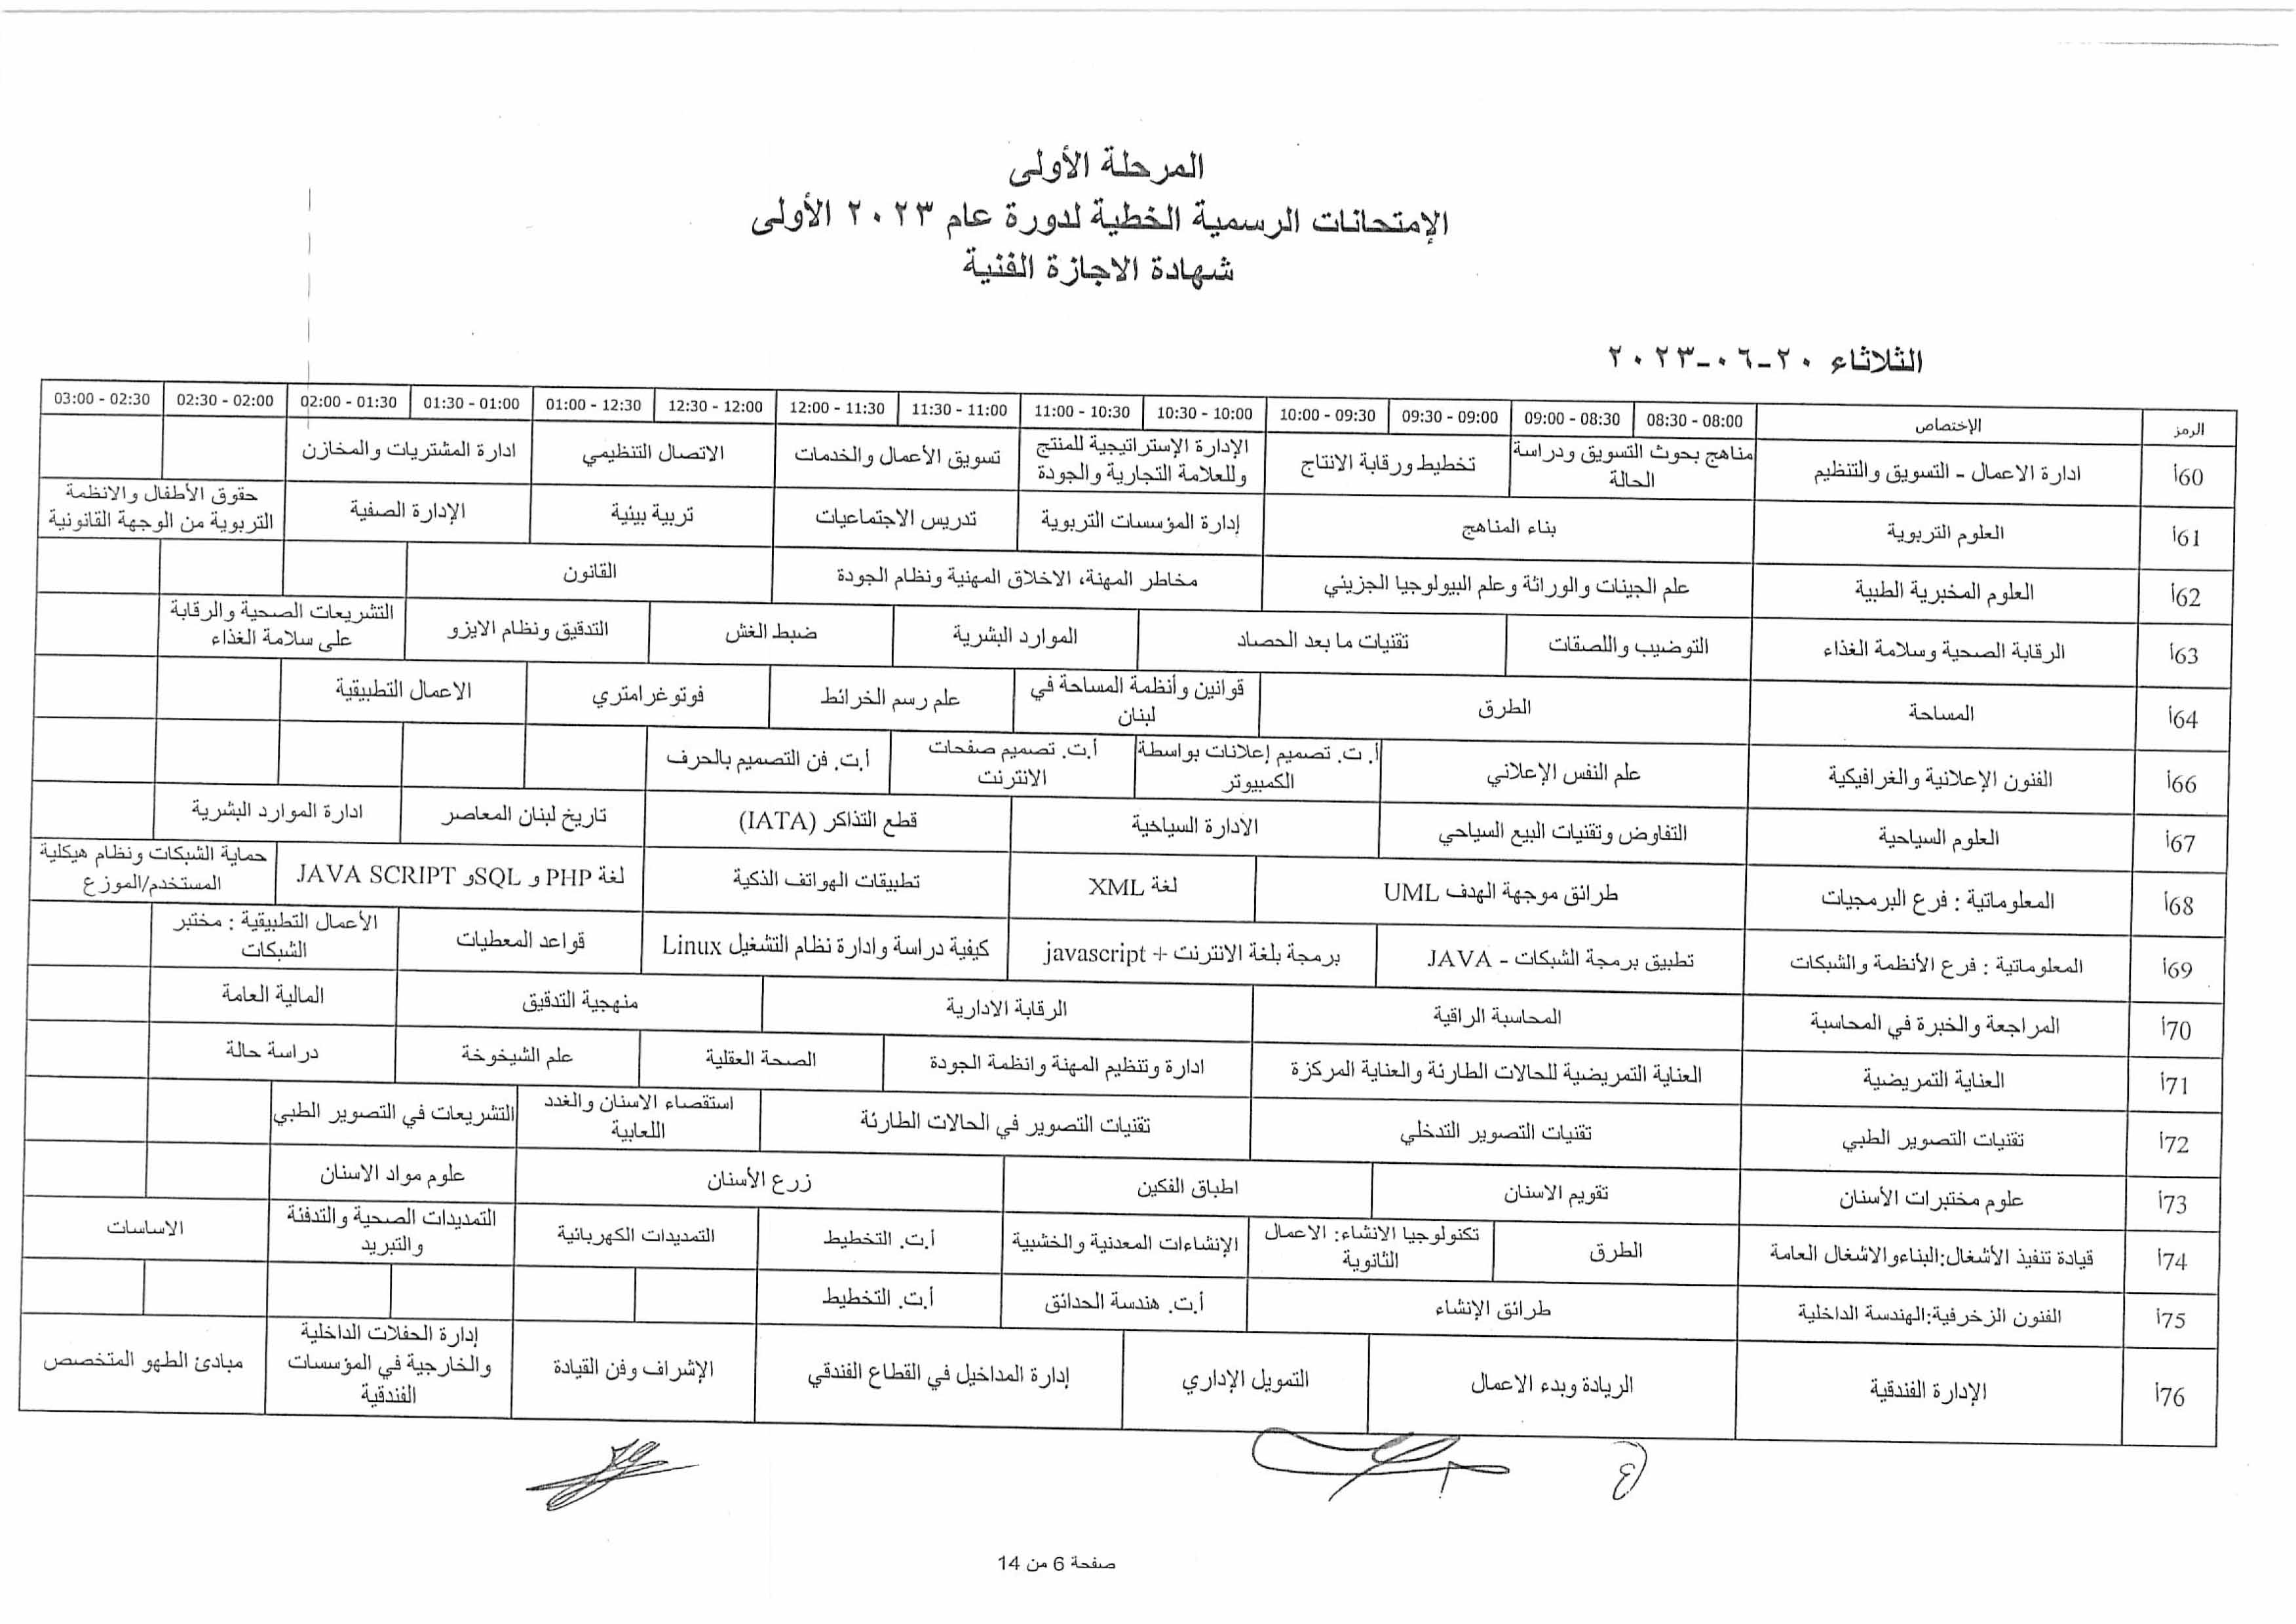 المرحلة الأولى
الإمتحانات الرسمية الخطية لدورة عام ٢٠٢٣ الأولى
شهادة الاجازة الفنية
الثلاثاء ٢٠-٠٦-٢٠٢٣
الرمز الإختصاص 08:00 - 08:30 08:30 - 09:00 09:00 - 09:30 09:30 - 10:00 10:00 - 10:30 10:30 - 11:00 11:00 - 11:30 11:30 - 12:00 12:00 - 12:30 12:30 - 01:00 01:00 - 01:30 01:30 - 02:00 02:00 - 02:30 02:30 - 03:00
أ60 ادارة الاعمال - التسويق والتنظيم
مناهج بحوث التسويق ودراسة
الحالة
تخطيط ورقابة الانتاج
الإدارة الإستراتيجية للمنتج
وللعلامة التجارية والجودة
تسويق الأعمال والخدمات
الاتصال التنظيمي
ادارة المشتريات والمخازن
أ61 العلوم التربوية
بناء المناهج
إدارة المؤسسات التربوية
تدريس الاجتماعيات
تربية بيئية
الإدارة الصفية
حقوق الأطفال والانظمة
التربوية من الوجهة القانونية
أ62 العلوم المخبرية الطبية
علم الجينات والوراثة وعلم البيولوجيا الجزيئي
مخاطر المهنة، الاخلاق المهنية ونظام الجودة
القانون
أ63 الرقابة الصحية وسلامة الغذاء
التوضيب واللصقات
تقنيات ما بعد الحصاد
الموارد البشرية
ضبط الغش
التدقيق ونظام الايزو
التشريعات الصحية والرقابة
على سلامة الغذاء
أ64 المساحة
الطرق
قوانين وأنظمة المساحة في
لبنان
علم رسم الخرائط
فوتوغرامتري
الاعمال التطبيقية
أ66 الفنون الإعلانية والغرافيكية
علم النفس الإعلاني
أ.ت. تصميم إعلانات بواسطة
الكمبيوتر
أ.ت. تصميم صفحات
الانترنت
أ.ت. فن التصميم بالحرف
أ67 العلوم السياحية
التفاوض وتقنيات البيع السياحي
الادارة السياحية
قطع التذاكر (IATA)
تاريخ لبنان المعاصر
ادارة الموارد البشرية
أ68 المعلوماتية : فرع البرمجيات
طرائق موجهة الهدف UML
لغة XML
تطبيقات الهواتف الذكية
لغة PHP و SQLو JAVA SCRIPT
حماية الشبكات ونظام هيكلية
المستخدم/الموزع
أ69 المعلوماتية : فرع الأنظمة والشبكات
تطبيق برمجة الشبكات - JAVA
برمجة بلغة الانترنت + javascript
كيفية دراسة وادارة نظام التشغيل Linux
قواعد المعطيات
الأعمال التطبيقية : مختبر
الشبكات
أ70 المراجعة والخبرة في المحاسبة
المحاسبة الراقية
الرقابة الادارية
منهجية التدقيق
المالية العامة
أ71 العناية التمريضية
العناية التمريضية للحالات الطارئة والعناية المركزة
ادارة وتنظيم المهنة وانظمة الجودة
الصحة العقلية
علم الشيخوخة
دراسة حالة
أ72 تقنيات التصوير الطبي
تقنيات التصوير التدخلي
تقنيات التصوير في الحالات الطارئة
استقصاء الاسنان والغدد
اللعابية
التشريعات في التصوير الطبي
أ73 علوم مختبرات الأسنان
تقويم الاسنان
اطباق الفكين
زرع الأسنان
علوم مواد الاسنان
أ74 قيادة تنفيذ الأشغال:البناءوالاشغال العامة
الطرق
تكنولوجيا الانشاء: الاعمال
الثانوية
الإنشاءات المعدنية والخشبية
أ.ت. التخطيط
التمديدات الكهربائية
التمديدات الصحية والتدفئة
والتبريد
الاساسات
أ75 الفنون الزخرفية:الهندسة الداخلية
طرائق الإنشاء
أ.ت. هندسة الحدائق
أ.ت. التخطيط
أ76 الإدارة الفندقية
الريادة وبدء الاعمال
التمويل الإداري
إدارة المداخيل في القطاع الفندقي
الإشراف وفن القيادة
إدارة الحفلات الداخلية
والخارجية في المؤسسات
الفندقية
مبادئ الطهو المتخصص
صفحة 6 من 14